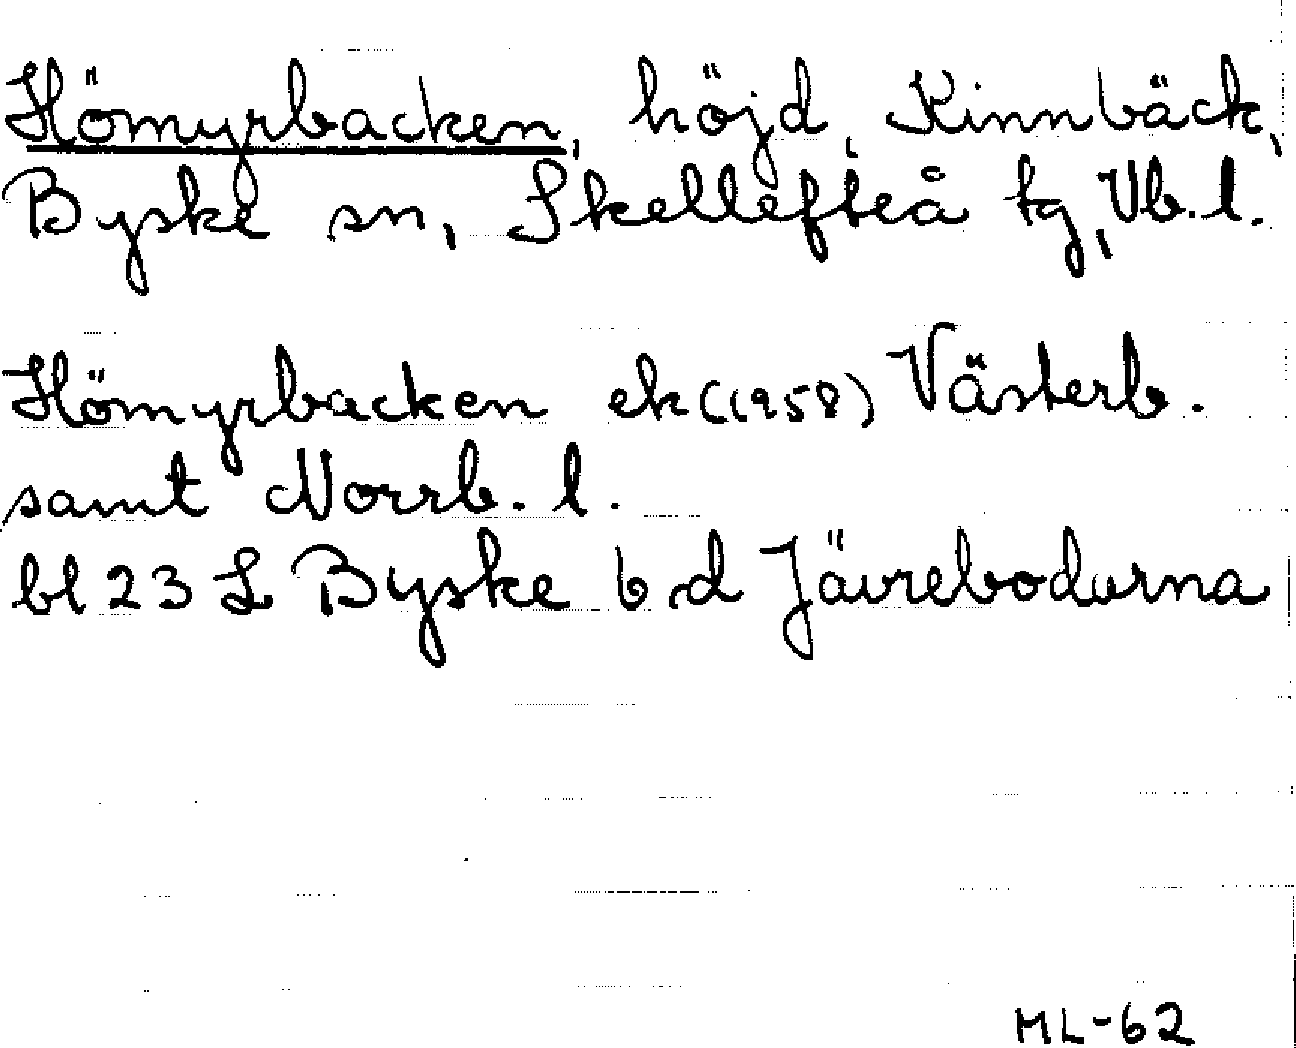 Hömyrbacken, höjd, Kinnbäck,
Byske sn, Skellefteå tg, Vb. l.
Hömyrbacken ek (1958) Västerb.
samt Norrb. l.
bl 23 L Byske b d Jävrebodarna
ML-62